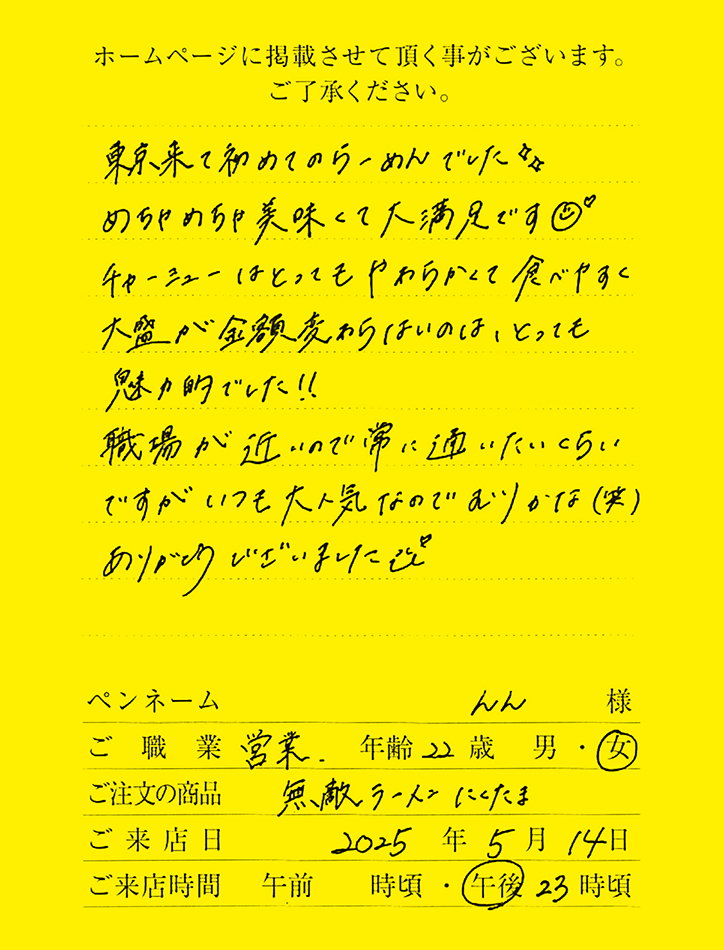 ホームページに掲載させて頂く事がございます。
ご了承ください。
東京来て初めてのらーめんでした✨
めちゃめちゃ美味くて大満足です☺♡
チャーシューはとってもやわらかくて食べやすく
大盛が金額変わらはいのは、とっても
魅力的でした!!
職場が近いので常に通いたいくらい
ですがいつも大人気なのでむりかな(笑)
ありがとうございました♡
ペンネーム んん 様
ご職業 営業. 年齢 22 歳 男・女
ご注文の商品 無敵ラーメンにくたま
ご来店日 2025 年 5 月 14 日
ご来店時間 午前 時頃・午後 23 時頃